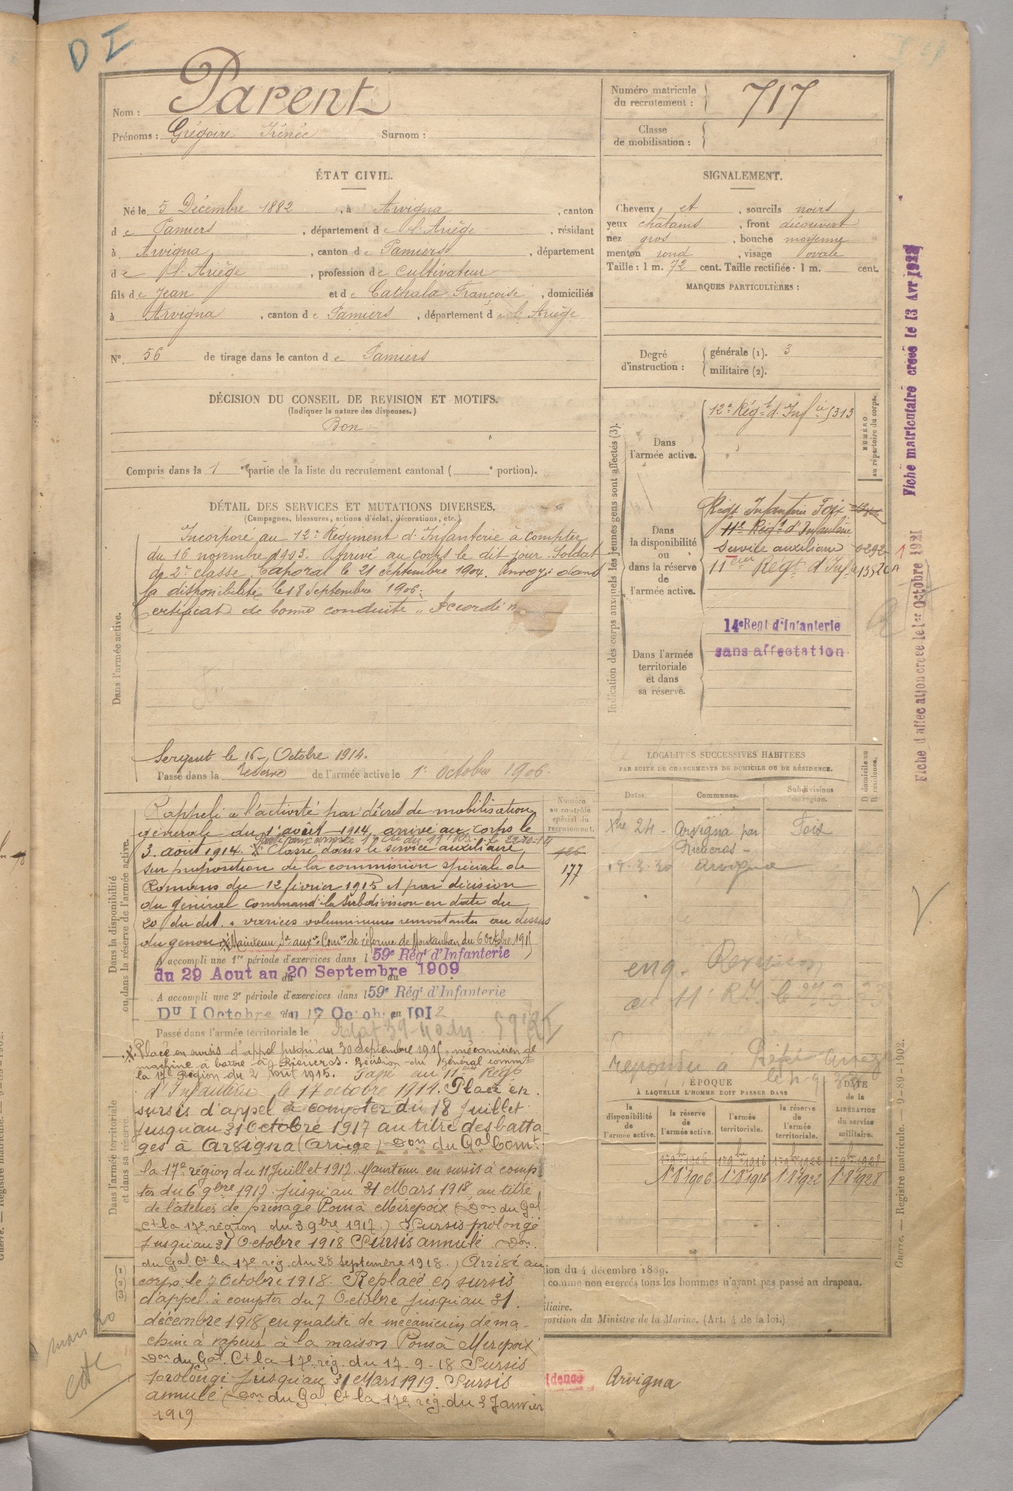 D I
Nom : Parent
Prénoms : Grégoire Irénée Surnom :
Numéro matricule du recrutement : 717
Classe de mobilisation :
ÉTAT CIVIL.
Né le 5 Décembre 1882, à Arvigna, canton
de Pamiers, département de l'Ariège, résidant
à Arvigna, canton de Pamiers, département
de l'Ariège, profession de Cultivateur
fils de Jean et de Cathala Françoise, domiciliés
à Arvigna, canton de Pamiers, département de l'Ariège
N° 56 de tirage dans le canton de Pamiers
SIGNALEMENT.
Cheveux et, sourcils noirs
yeux châtains, front découvert
nez gros, bouche moyenne
menton rond, visage ovale
Taille : 1 m. 72 cent. Taille rectifiée : 1 m. cent.
MARQUES PARTICULIÈRES :
Degré d'instruction : générale (1). 3
militaire (2).
DÉCISION DU CONSEIL DE REVISION ET MOTIFS.
(Indiquer la nature des dispenses.)
Bon
Compris dans la 1 partie de la liste du recrutement cantonal ( portion).
DÉTAIL DES SERVICES ET MUTATIONS DIVERSES.
(Campagnes, blessures, actions d'éclat, décorations, etc.)
Dans l'armée active.
Incorporé au 12e Régiment d'Infanterie à compter
du 16 novembre 1903. Arrivé au corps le dit jour. Soldat
de 2e classe. Caporal le 21 septembre 1904. Envoyé dans
la disponibilité le 18 septembre 1906.
Certificat de bonne conduite "Accordé"
Sergent le 16 Octobre 1914.
Passé dans la réserve de l'armée active le 1er octobre 1906.
Indication des corps auxquels les jeunes gens sont affectés (3).
NUMÉRO au répertoire du corps.
Dans l'armée active.
12e Régt d'Infie 5313
Dans la disponibilité ou dans la réserve de l'armée active.
Régt Infanterie Foix
11e Régt d'Infanterie
Service auxiliaire
11eme Régt d'Infie
Dans l'armée territoriale et dans sa réserve.
14e Regt d'Infanterie
sans affectation
Fiche matriculaire créée le 13 Avr
Fiche d'affectation créée le 1er Octobre 1921
LOCALITÉS SUCCESSIVES HABITÉES
PAR SUITE DE CHANGEMENTS DE DOMICILE OU DE RÉSIDENCE.
Dates. Communes. Subdivisions de région. D domicile ou R résidence.
Xbre 24 - Arvigna par Rieucros - Foix
Arvigna
Dans la disponibilité ou dans la réserve de l'armée active.
Numéro au contrôle spécial du recrutement.
177
Rappelé à l'activité par décret de mobilisation
générale du 1er août 1914, arrivé au corps le
3 août 1914. Classé dans le service auxiliaire
sur proposition de la commission spéciale de
Romans du 12 février 1915 et par décision
du général Command la subdivision en date du
20 du dit. varices volumineuses remontantes au dessus
du genou. Maintenu Sce auxre Comon de réforme de Montauban du 6 Octobre 191
A accompli une 1re période d'exercices dans l 59e Régt d'Infanterie
du 29 Aout au 20 Septembre 1909
A accompli une 2e période d'exercices dans l 59e Régt d'Infanterie
Du 1 Octobre au 17 Octobre 1912
Passé dans l'armée territoriale le
Dans l'armée territoriale et dans sa réserve.
Placé en sursis d'appel jusqu'au 30 septembre 1915, mécanicien de
machine à battre à Rieucros. Décision du Général commt
la 17e Région du 2 Avril 1915. Passé au 11eme Régt
d'Infanterie le 17 octobre 1914. Placé en
sursis d'appel à compter du 18 Juillet
jusqu'au 31 Octobre 1917 au titre des batta
ges à Arvigna (Ariège) Don du Gal Comt
la 17e région du 11 Juillet 1917. Maintenu en sursis à comp
ter du 6 9bre 1917 jusqu'au 31 Mars 1918, au titre
de l'atelier de pressage Pons à Mirepoix (Don du Gal
Ct la 17e région du 3 9bre 1917.) Sursis prolongé
jusqu'au 31 Octobre 1918 Sursis annulé Don.
du Gal Ct la 17e rég. du 28 septembre 1918.) Arrivé au
corps le 7 Octobre 1918 Replacé en sursis
d'appel à compter du 7 Octobre jusqu'au 31
décembre 1918 en qualité de mécanicien de ma-
chine à vapeur à la maison Pons à Mirepoix
Don du Gal Ct la 17e rég. du 17-9-18 Sursis
prolongé jusqu'au 31 Mars 1919. Sursis
annulé (Don du Gal Ct la 17e rég. du 3 Janvier
1919
ÉPOQUE
À LAQUELLE L'HOMME DOIT PASSER DANS
la disponibilité de l'armée active. la réserve de l'armée active. l'armée territoriale. la réserve de l'armée territoriale. DATE de la LIBÉRATION du service militaire.
1r 8bre 1906 1r 8bre 1916 1r 8bre 1922 1r 8bre 1928
ion du 4 décembre 1889.
comme non exercés tous les hommes n'ayant pas passé au drapeau.
iliaire.
position du Ministre de la Marine. (Art. 4 de la loi.)
Arvigna
Guerre. — Registre matricule. — 9-89-1902.